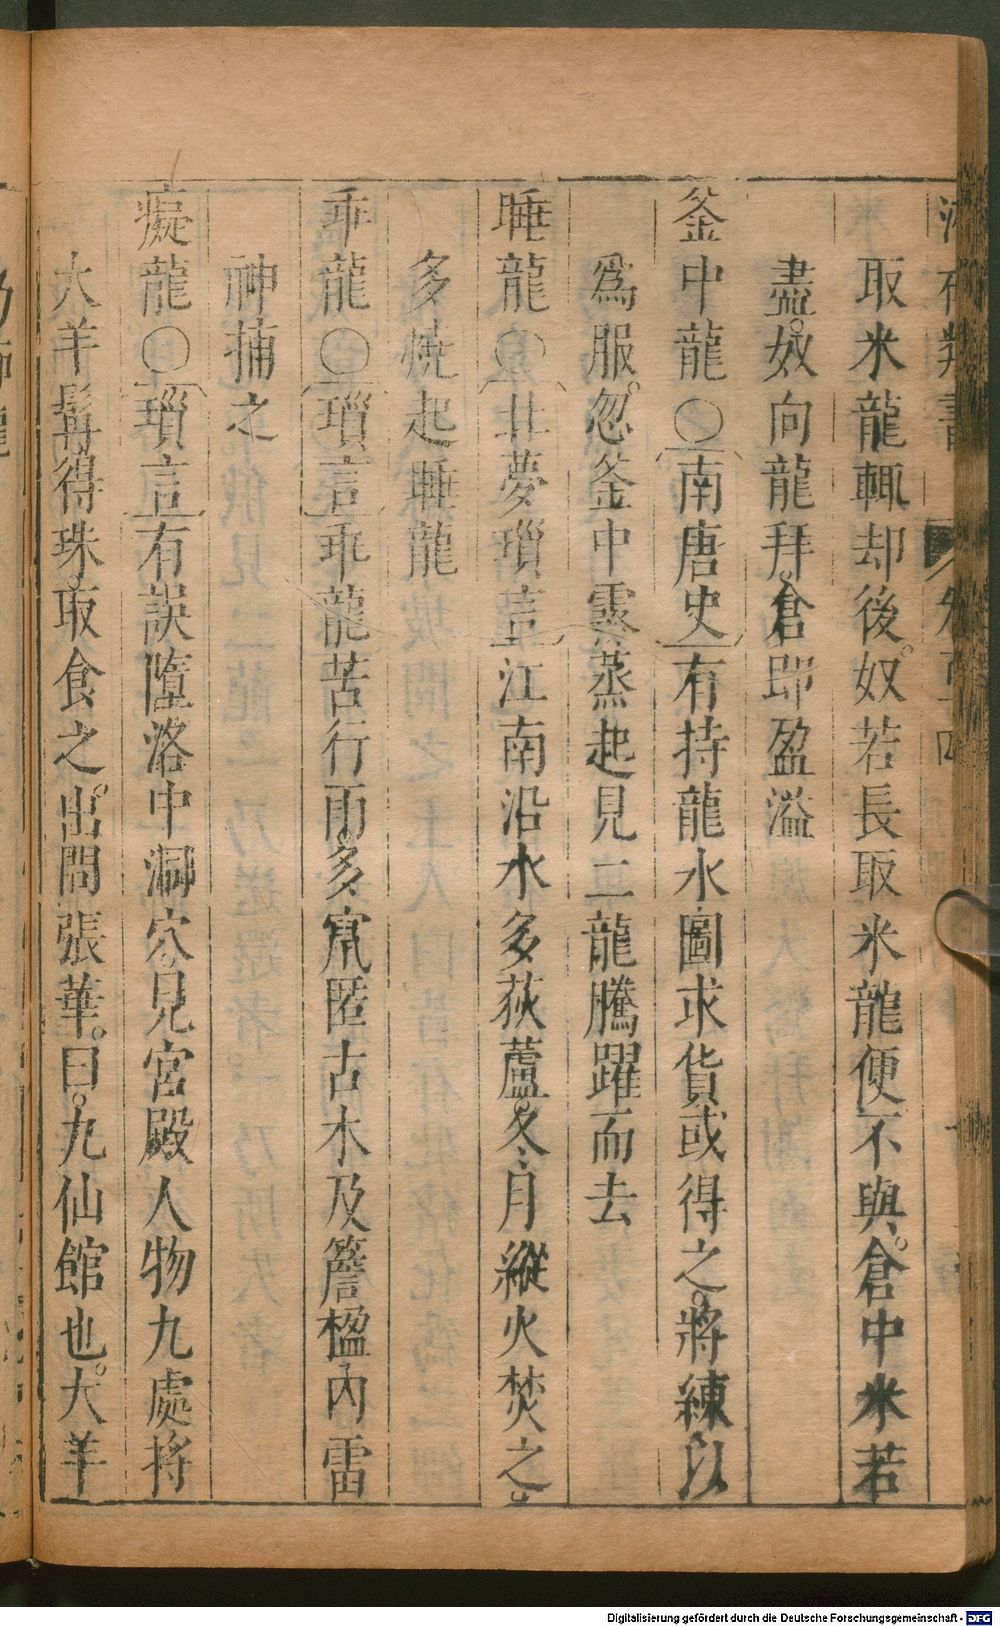 取米龍輒却後。奴若長取米龍便不與。倉中米若
盡。奴向龍拜。倉即盈溢
釜中龍○南唐史有持龍水圖求貨或得之。將練以
爲服。忽釜中雲蒸起見二龍騰躍而去
睡龍○北夢瑣言江南沿水多荻蘆。冬月縱火焚之。
多燒起睡龍
乖龍○瑣言乖龍苦行雨。多竄匿古木及簷楹內雷
神捕之
癡龍○瑣言有誤墮洛中洞穴。見宮殿人物九處將
大羊髯得珠。取食之。出問張華。曰。九仙館也。大羊
Digitalisierung gefördert durch die Deutsche Forschungsgemeinschaft - DFG